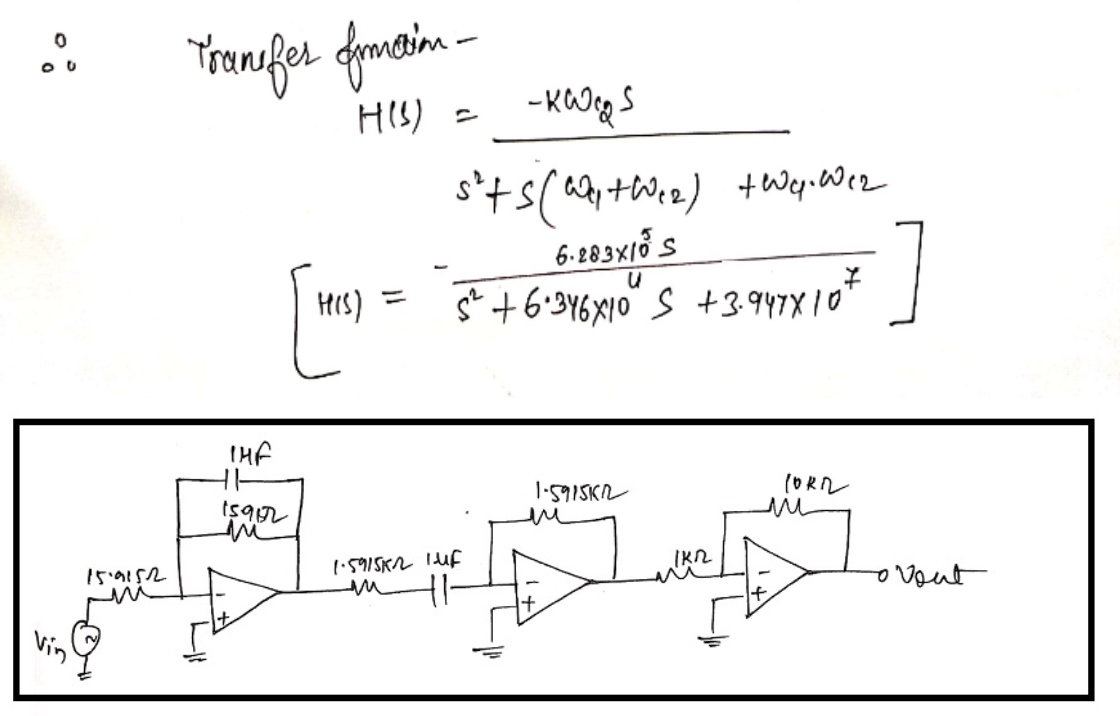 ∴ Transfer function -
H(s) = -Kωc2 s
s² + s(ωc1 + ωc2) + ωc1·ωc2
[H(s) = - 6.283×10⁵ s
s² + 6.346×10⁴ s + 3.947×10⁷]
1μF
15.915Ω
Vin
-
+
1.5915KΩ
1μF
1.5915KΩ
-
+
1KΩ
10KΩ
-
+
Vout